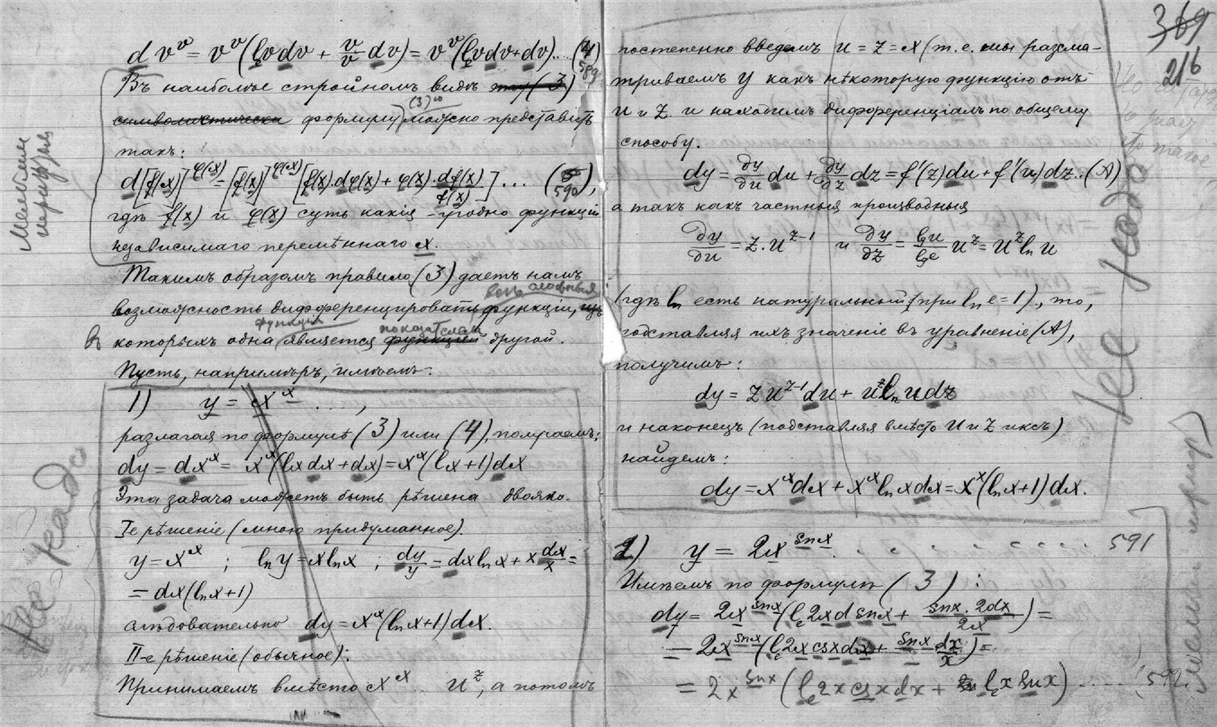 d v^v = v^v (lv dv + v/v dv) = v^v (lv dv + dv) .. (4)
589
Въ наиболѣе стройномъ видѣ
символистически формулу (3)ю можно представить
такъ:
d[f(x)]^φ(x) = [f(x)]^φ(x) [f(x).dφ(x) + φ(x).df(x)/f(x)] ... (5)
590
гдѣ f(x) и φ(x) суть какія-угодно функціи
независимаго перемѣннаго x.
Мелкимъ
Такимъ образомъ правило (3) даетъ намъ
возможность дифференцировать функціи,
въ которыхъ одна функція является показателемъ функціей другой.
Пусть, напримѣръ, имѣемъ:
1) y = x^x ...,
разлагая по формулѣ (3) или (4), получаемъ:
dy = dx^x = x^x (lx dx + dx) = x^x (lx + 1) dx
Эта задача можетъ быть рѣшена двояко.
I-е рѣшеніе (мною придуманное).
y = x^x ; ln y = x ln x ; dy/y = dx ln x + x dx/x =
= dx (ln x + 1)
слѣдовательно dy = x^x (ln x + 1) dx.
II-е рѣшеніе (обычное):
Принимаемъ вмѣсто x^x .. u^z, а потомъ
Не надо
369
216
постепенно введемъ u = z = x (т. е. мы разсма-
триваемъ y какъ нѣкоторую функцію отъ
u и z и находимъ дифференціалъ по общему
способу.
dy = ∂y/∂u du + ∂y/∂z dz = f'(z) du + f'(u) dz . (A)
а такъ какъ частныя производныя
∂y/∂u = z.u^z-1 и ∂y/∂z = lu/le u^z = u^z ln u
(гдѣ ln есть натуральный при ln e = 1)., то,
подставляя ихъ значеніе въ уравненіе (A),
получимъ:
dy = z u^z-1 du + u^z ln u dz
и наконецъ (подставляя вмѣсто u и z иксъ)
найдемъ:
dy = x^x dx + x^x ln x dx = x^x (ln x + 1) dx.
Не надо
2) y = 2x^snx . . . . . . . 591
Имѣемъ по формулѣ (3):
dy = 2x^snx (le 2x d snx + snx.2dx/2x) =
= 2x^snx (le 2x csx dx + snx dx/x) =
= 2x^snx (le 2x csx dx + le x snx) ..... 592